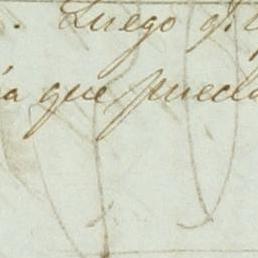 . Luego q.
ia que pueda